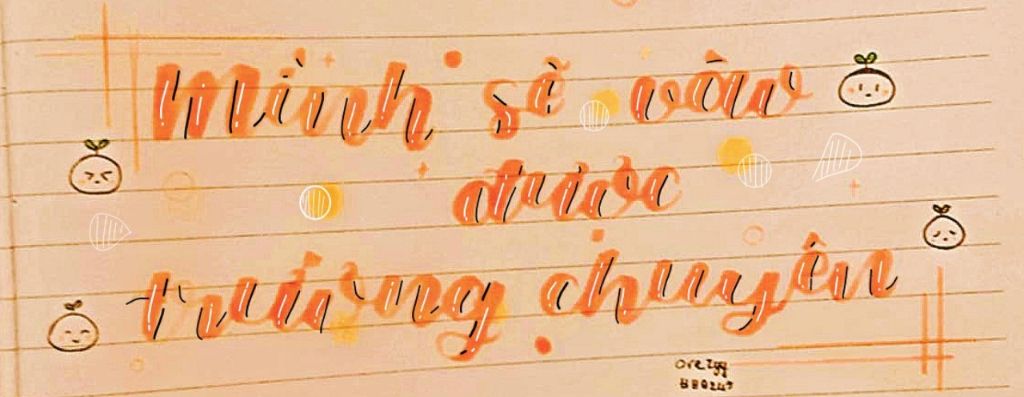 mình sẽ vào
được
trường chuyên